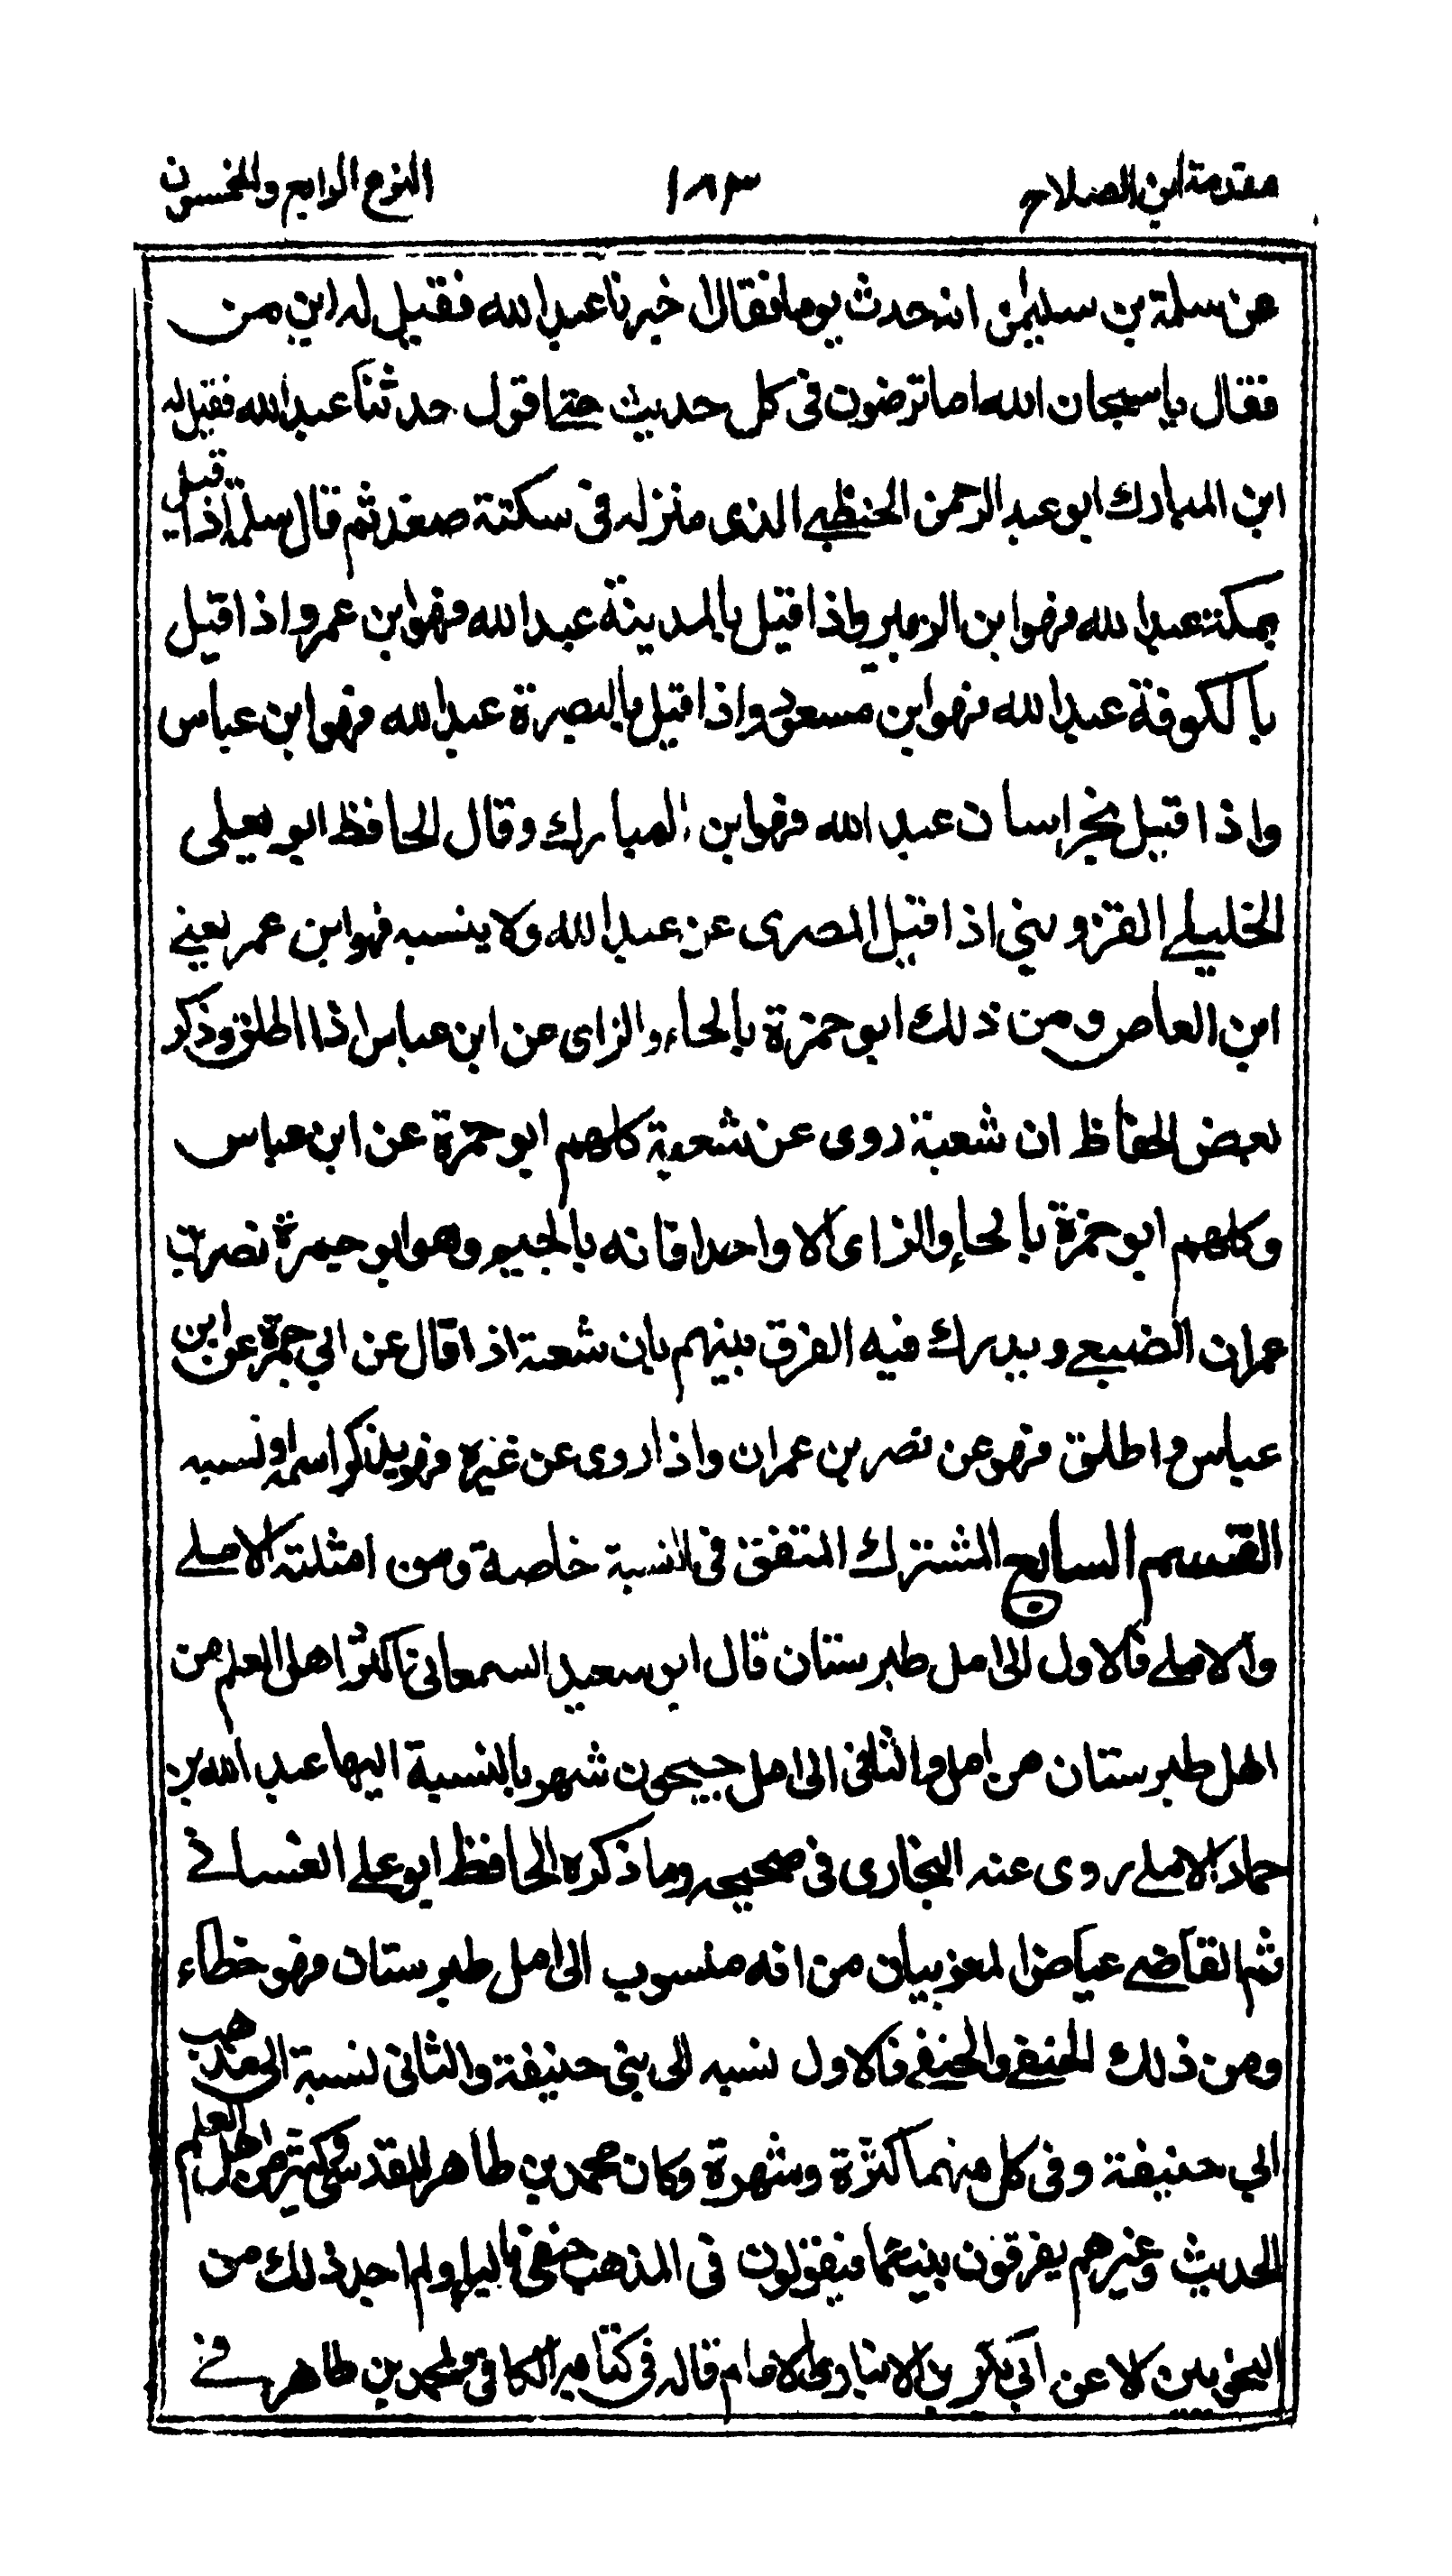 مقدمة ابن الصلاح ١٨٣ النوع الرابع والخمسون
عن سلمة بن سليمٰن انه حدث يوما فقال اخبرنا عبد الله فقيل له ابن من
فقال ياسبحان الله اما ترضون في كل حديث حتى اقول حدثنا عبد الله فقيل له
ابن المبارك ابو عبد الرحمن الحنظلے الذى منزله في سكة صغد ثم قال سلمة اذا قيل
بمكة عبد الله فهو ابن الزبير واذا قيل بالمدينة عبد الله فهو ابن عمر واذا قيل
بالكوفة عبد الله فهو ابن مسعود واذا قيل بالبصرة عبد الله فهو ابن عباس
واذا قيل بخراسان عبد الله فهو ابن المبارك وقال الحافظ ابو يعلى
الخليلے القزويني اذا قيل المصرى عن عبد الله ولا ينسبه فهو ابن عمر يعنے
ابن العاص ومن ذلك ابو حمزة بالحاء والزاى عن ابن عباس اذا اطلق وذكر
بعض الحفاظ ان شعبة روى عن شعبة كلهم ابو حمزة عن ابن عباس
وكلهم ابو حمزة بالحاء والزاى الا واحدا فانه بالجيم وهو ابو جمرة نصر بن
عمران الضبعے ويدرك فيه الفرق بينهم بان شعبة اذا قال عن ابي جمرة عن ابن
عباس واطلق فهو عن نصر بن عمران واذا روى عن غيره فهو يذكر اسمه او نسبه
القسم السابع المشترك المتفق في النسبة خاصة ومن امثلته الاملے
والاملے فالاول الى امل طبرستان قال ابو سعيد السمعاني اكثر اهل العلم من
اهل طبرستان من امل والثاني الى امل جيحون شهر بالنسبة اليها عبد الله بن
حماد الاملے روى عنه البخارى في صحيحه وما ذكره الحافظ ابو علے الغسانے
ثم القاضے عياض المغربيان من انه منسوب الى امل طبرستان فهو خطاء
ومن ذلك الحنفے والحنفے فالاول نسبه الى بني حنيفة والثاني نسبة الى مذهب
ابي حنيفة وفي كل منهما كثرة وشهرة وكان محمد بن طاهر المقدسى وكثير من اهل العلم
الحديث وغيرهم يفرقون بينهما فيقولون في المذهب حنيفى بالياء ولم اجد ذلك من
النحويين الا عن ابي بكر بن الانبارى الامام قاله في كتابه الكافى ولمحمد بن طاهر فے